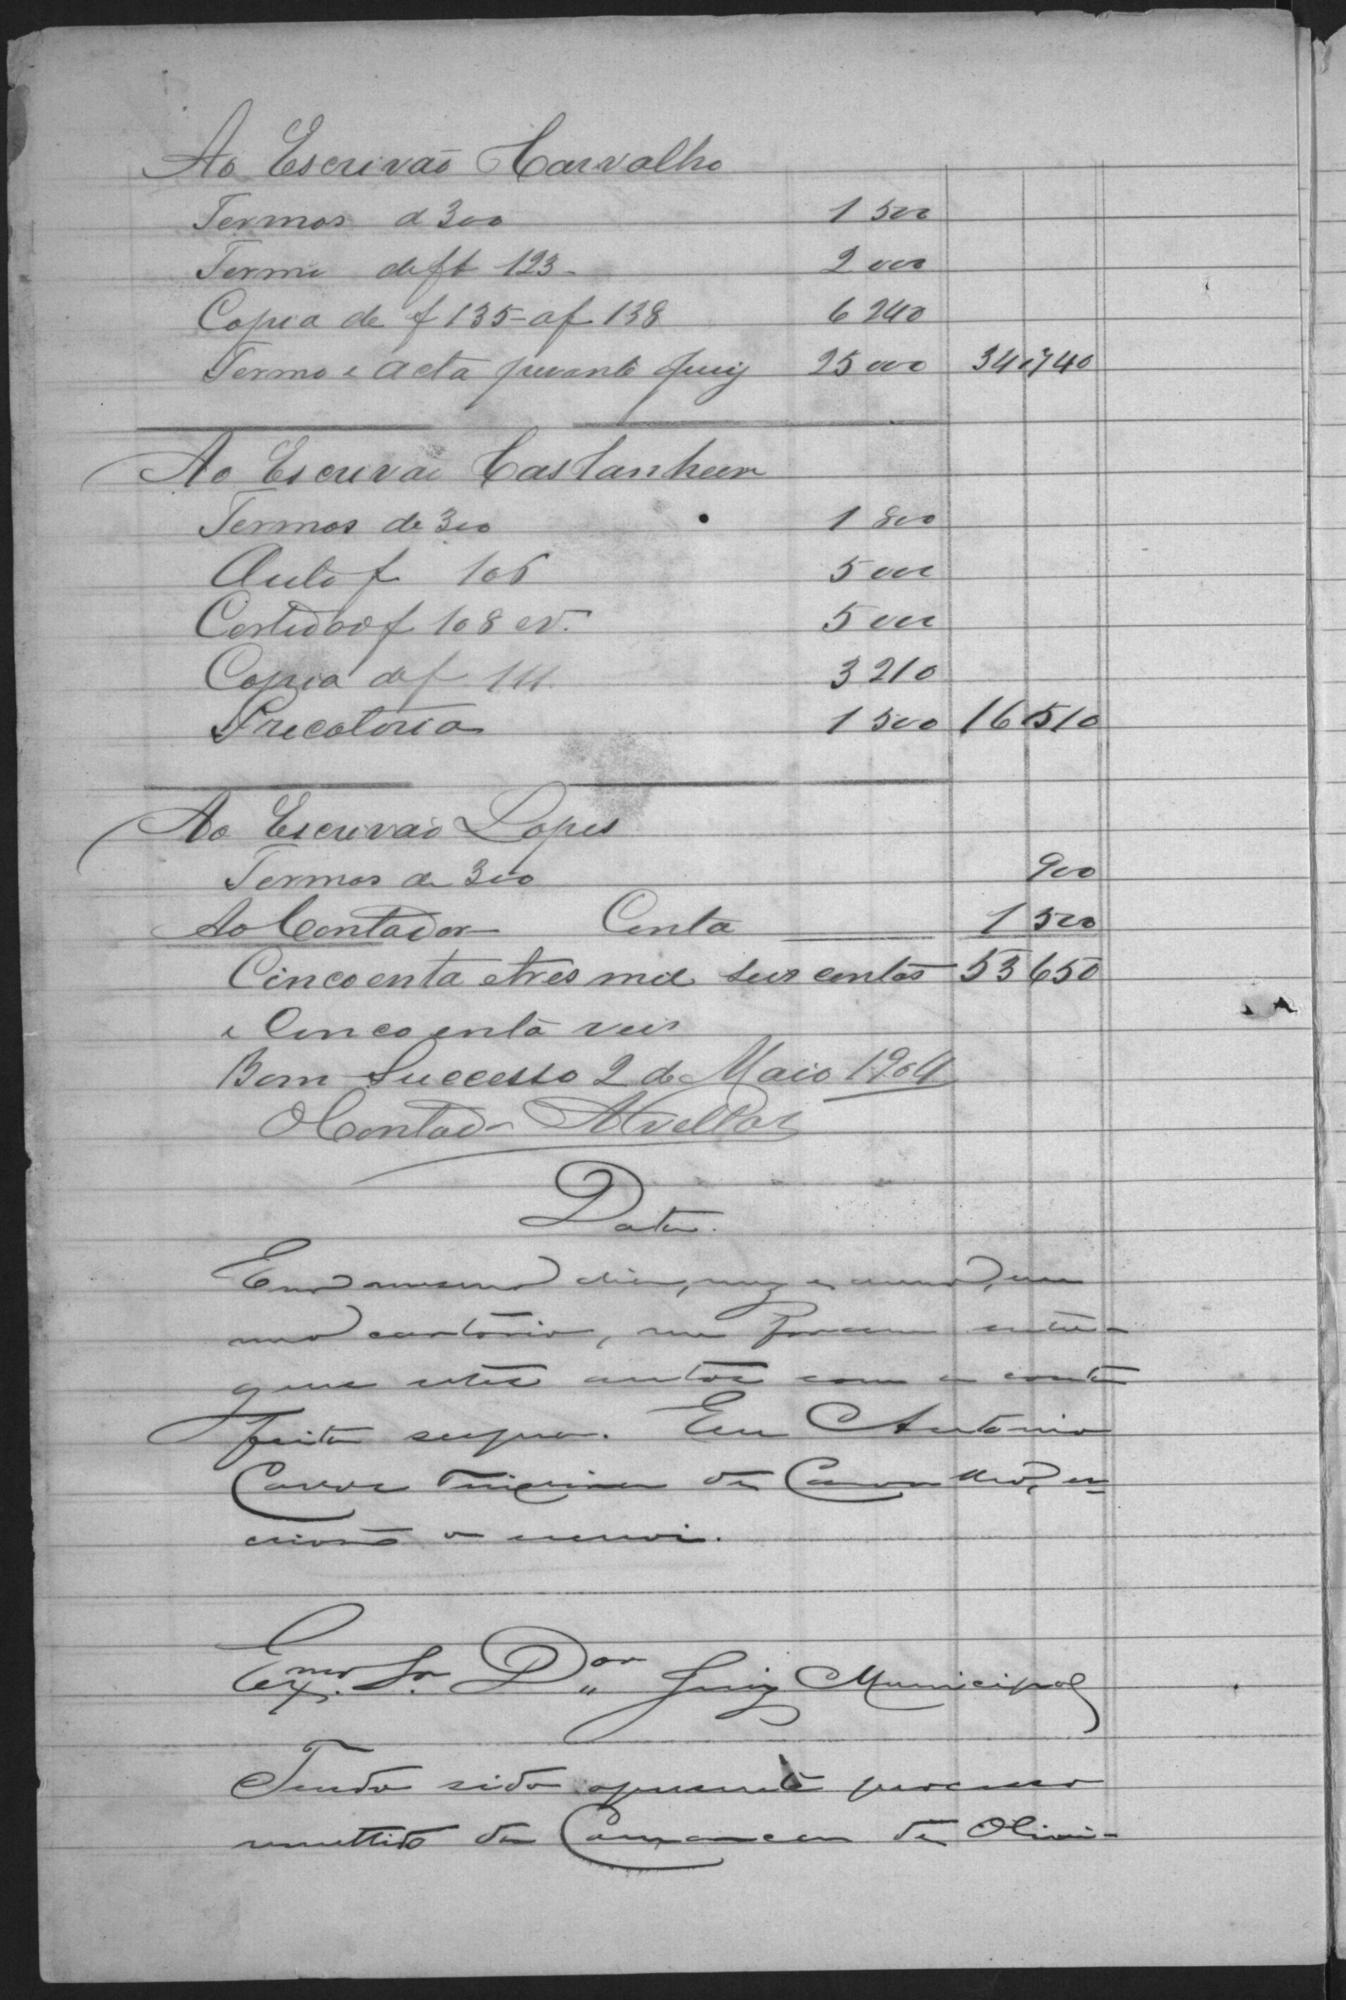 Ao Escrivão Carvalho
Termos d 300 1 500
Termo de ff 123 - 2 000
Copia de f 135 - a f 138 6 240
Termo e acta perante Juiz 25 000 34,740
Ao Escrivão Castanheira
Termos de 300 1 800
Auto f 106 5 000
Certidão f 108 e v. 5 000
Copia de f 111 3 210
Precatoria 1 500 16 510
Ao Escrivão Lopes
Termos de 300 900
Ao Contador Conta 1 500
Cincoenta e tres mil seis centos 53 650
e Cincoenta reis
Bom Successo 2 de Maio 1904
O Contador
Data.
Em o mesmo dia, mez e anno, em
meo cartório, me foram entre-
gues estes autos com a conta
feita supra. Eu Antonio
Carlos Teixeira de Carvalho, es-
crivão o escrevi.
Exmo. Sr. Dor. Juiz Municipal
Tendo sido o presente processo
remettido da Comarca de Olivei-